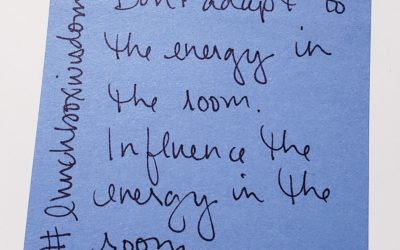 Don't adapt to
the energy in
the room.
Influence the
energy in the
room
#lunchboxwisdom